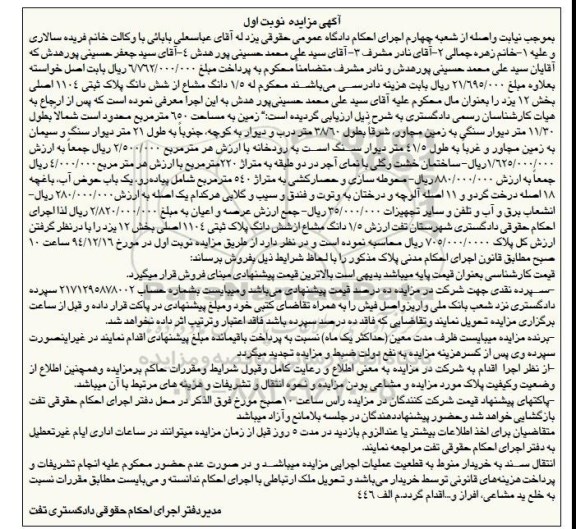 آگهی مزایده نوبت اول
بموجب نیابت واصله از شعبه چهارم اجرای احکام دادگاه عمومی حقوقی یزد له آقای عباسعلی بابائی با وکالت خانم فریده سالاری
و علیه ۱-خانم زهره جمالی ۲-آقای نادر مشرف ۳-آقای سید علی محمد حسینی پور هدش ۴-آقای سید جعفر حسینی پورهدش که
آقایان سید علی محمد حسینی پورهدش و نادر مشرف متضامناً محکوم به پرداخت مبلغ ۶/۷۶۲/۰۰۰/۰۰۰ ریال بابت اصل خواسته
بعلاوه مبلغ ۲۱/۶۹۵/۰۰۰ ریال بابت هزینه دادرسی می‌باشند محکوم له ۱/۵ دانگ مشاع از شش دانگ پلاک ثبتی ۱۱۰۴ اصلی
بخش ۱۲ یزد را بعنوان مال محکوم علیه آقای سید علی محمد حسینی پور هدش به این اجرا معرفی نموده است که پس از ارجاع به
هیات کارشناسان رسمی دادگستری به شرح ذیل ارزیابی گردیده است:" زمین به مساحت ۶۵۰ مترمربع محدود است شمالا بطول
۱۱/۳۰ متر دیوار سنگی به زمین مجاور، شرقا بطول ۳۸/۶۰ متر درب و دیوار به کوچه، جنوبا به طول ۲۱ متر دیوار سنگ و سیمان
به زمین مجاور و غربا به طول ۴۱/۵ متر دیوار سنگ است به رودخانه با ارزش هر مترمربع ۲/۵۰۰/۰۰۰ ریال جمعاً به ارزش
۱/۶۲۵/۰۰۰/۰۰۰ریال-ساختمان خشت و گلی با نمای آجر در دو طبقه به متراژ ۲۲۰مترمربع با ارزش هر متر مربع ۴/۰۰۰/۰۰۰ ریال
جمعاً به ارزش ۸۸۰/۰۰۰/۰۰۰ ریال- محوطه سازی و حصارکشی به متراژ ۵۴۰ مترمربع شامل پیاده‌رو، یک باب حوض آب، باغچه
۱۸ اصله درخت گردو و ۱۱ اصله آلوچه و درختان به وتوت و فندق و سیب و گلابی هرکدام یک اصله به ارزش ۲۸۰/۰۰۰/۰۰۰ ریال-
انشعاب برق و آب و تلفن و سایر تجهیزات ۳۵/۰۰۰/۰۰۰ریال-جمع ارزش عرصه و اعیان به مبلغ ۲/۸۲۰/۰۰۰/۰۰۰ ریال لذا اجرای
احکام حقوقی دادگستری شهرستان تفت ارزش ۱/۵ دانگ مشاع از شش دانگ پلاک ثبتی ۱۱۰۴ اصلی بخش ۱۲ یزد را با درنظر گرفتن
ارزش کل پلاک ۷۰۵/۰۰۰/۰۰۰ ریال محاسبه نموده است و در نظر دارد از طریق مزایده نوبت اول در مورخ ۹۴/۱۲/۱۶ ساعت ۱۰
صبح مطابق قانون اجرای احکام مدنی پلاک مذکور را با لحاظ شرایط ذیل بفروش برساند:
قیمت کارشناسی بعنوان قیمت پایه میباشد بدیهی است بالاترین قیمت پیشنهادی مبنای فروش قرار میگیرد.
-سپرده نقدی جهت شرکت در مزایده ده درصد قیمت پیشنهادی می‌باشد و میبایست بشماره حساب ۲۱۷۱۲۹۵۸۷۸۰۰۲ سپرده
دادگستری نزد شعب بانک ملی واریز و اصل فیش را به همراه تقاضای کتبی خود و مبلغ پیشنهادی در پاکت قرار داده و قبل از ساعت
برگزاری مزایده تحویل نمایند و تقاضایی که فاقد ده درصد سپرده باشد فاقد اعتبار و ترتیب اثر داده نخواهد شد.
-برنده مزایده میبایست ظرف مدت معین (حداکثر یک ماه) نسبت به پرداخت باقیمانده مبلغ پیشنهادی اقدام نمایند در غیراینصورت
سپرده وی پس از کسر هزینه مزایده به نفع دولت ضبط و مزایده تجدید میگردد
-از نظر اجرا اقدام به شرکت در مزایده به معنی اطلاع و رعایت کامل و قبول شرایط و مقررات حاکم بر مزایده و همچنین اطلاع از
وضعیت و کیفیت پلاک مورد مزایده و مشاعی بودن مزایده و نحوه انتقال و تشریفات و هزینه های مرتبط با آن میباشد.
-پاکتهای پیشنهاد قیمت شرکت کنندگان در مزایده راس ساعت ۱۰صبح مورخ فوق الذکر در محل دفتر اجرای احکام حقوقی تفت
بازگشایی خواهد شد و حضور پیشنهاددهندگان در جلسه بلامانع و آزاد میباشد
متقاضیان برای اخذ اطلاعات بیشتر یا عنداللزوم بازدید در مدت ۵ روز قبل از زمان مزایده میتوانند در ساعات اداری ایام غیرتعطیل
به دفتر اجرای احکام حقوقی تفت مراجعه نمایند.
انتقال سند به خریدار منوط به قطعیت عملیات اجرایی مزایده میباشد و در صورت عدم حضور محکوم علیه انجام تشریفات و
پرداخت هزینه‌های قانونی توسط خریدار می‌باشد و تحویل ملک ارتباطی با اجرای احکام نداشته و می‌بایست مطابق مقررات نسبت
به خلع ید مشاعی، افراز و...اقدام گردد.م الف ۴۴۶
مدیر دفتر اجرای احکام حقوقی دادگستری تفت